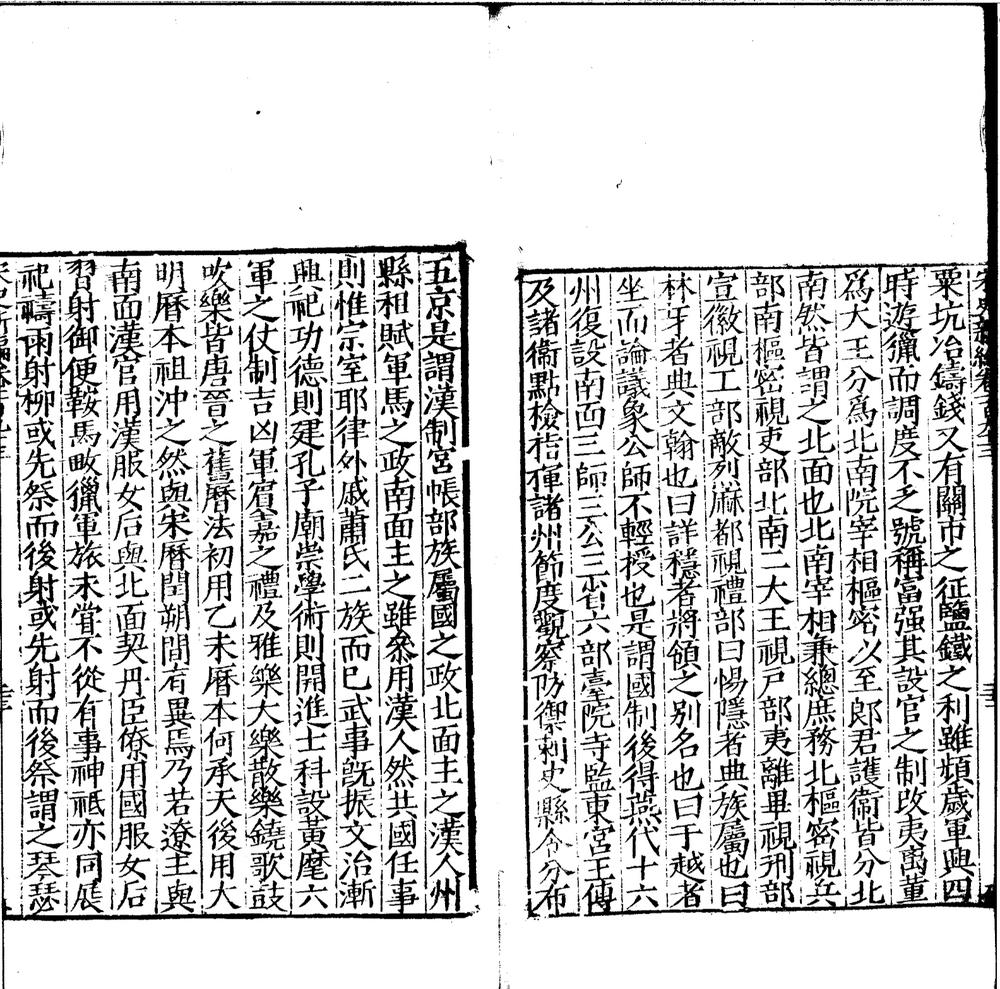 粟坑冶鑄錢又有關市之征鹽鐵之利雖頻歲軍興四
時遊獵而調度不乏號稱富强其設官之制改夷离菫
爲大王分爲北南院宰相樞密以至郎君護衞皆分北
南然皆謂之北面也北南宰相兼總庶務北樞密視兵
部南樞密視吏部北南二大王視戸部夷離畢視刑部
宣徽視工部敵烈麻都視禮部曰惕隱者典族屬也曰
林牙者典文翰也曰詳穩者將領之别名也曰于越者
坐而論議象公師不輕授也是謂國制後得燕代十六
州復設南面三師三公三省六部臺院寺監東宮王傅
及諸衞點檢祗候諸州節度觀察防禦刺史縣令分布
五京是謂漢制宮帳部族屬國之政北面主之漢人州
縣租賦軍馬之政南面主之雖叅用漢人然共國任事
則惟宗室耶律外戚蕭氏二族而已武事旣振文治漸
興祀功德則建孔子廟崇學術則開進士科設黃麾六
軍之仗制吉凶軍賓嘉之禮及雅樂大樂散樂鐃歌鼓
吹樂皆唐晉之舊曆法初用乙未曆本何承天後用大
明曆本祖沖之然與宋曆閏朔間有異焉乃若遼主與
南面漢官用漢服女后與北面契丹臣僚用國服女后
習射御便鞍馬畋獵軍旅未嘗不從有事神祗亦同展
祀禱雨射柳或先祭而後射或先射而後祭謂之琴瑟